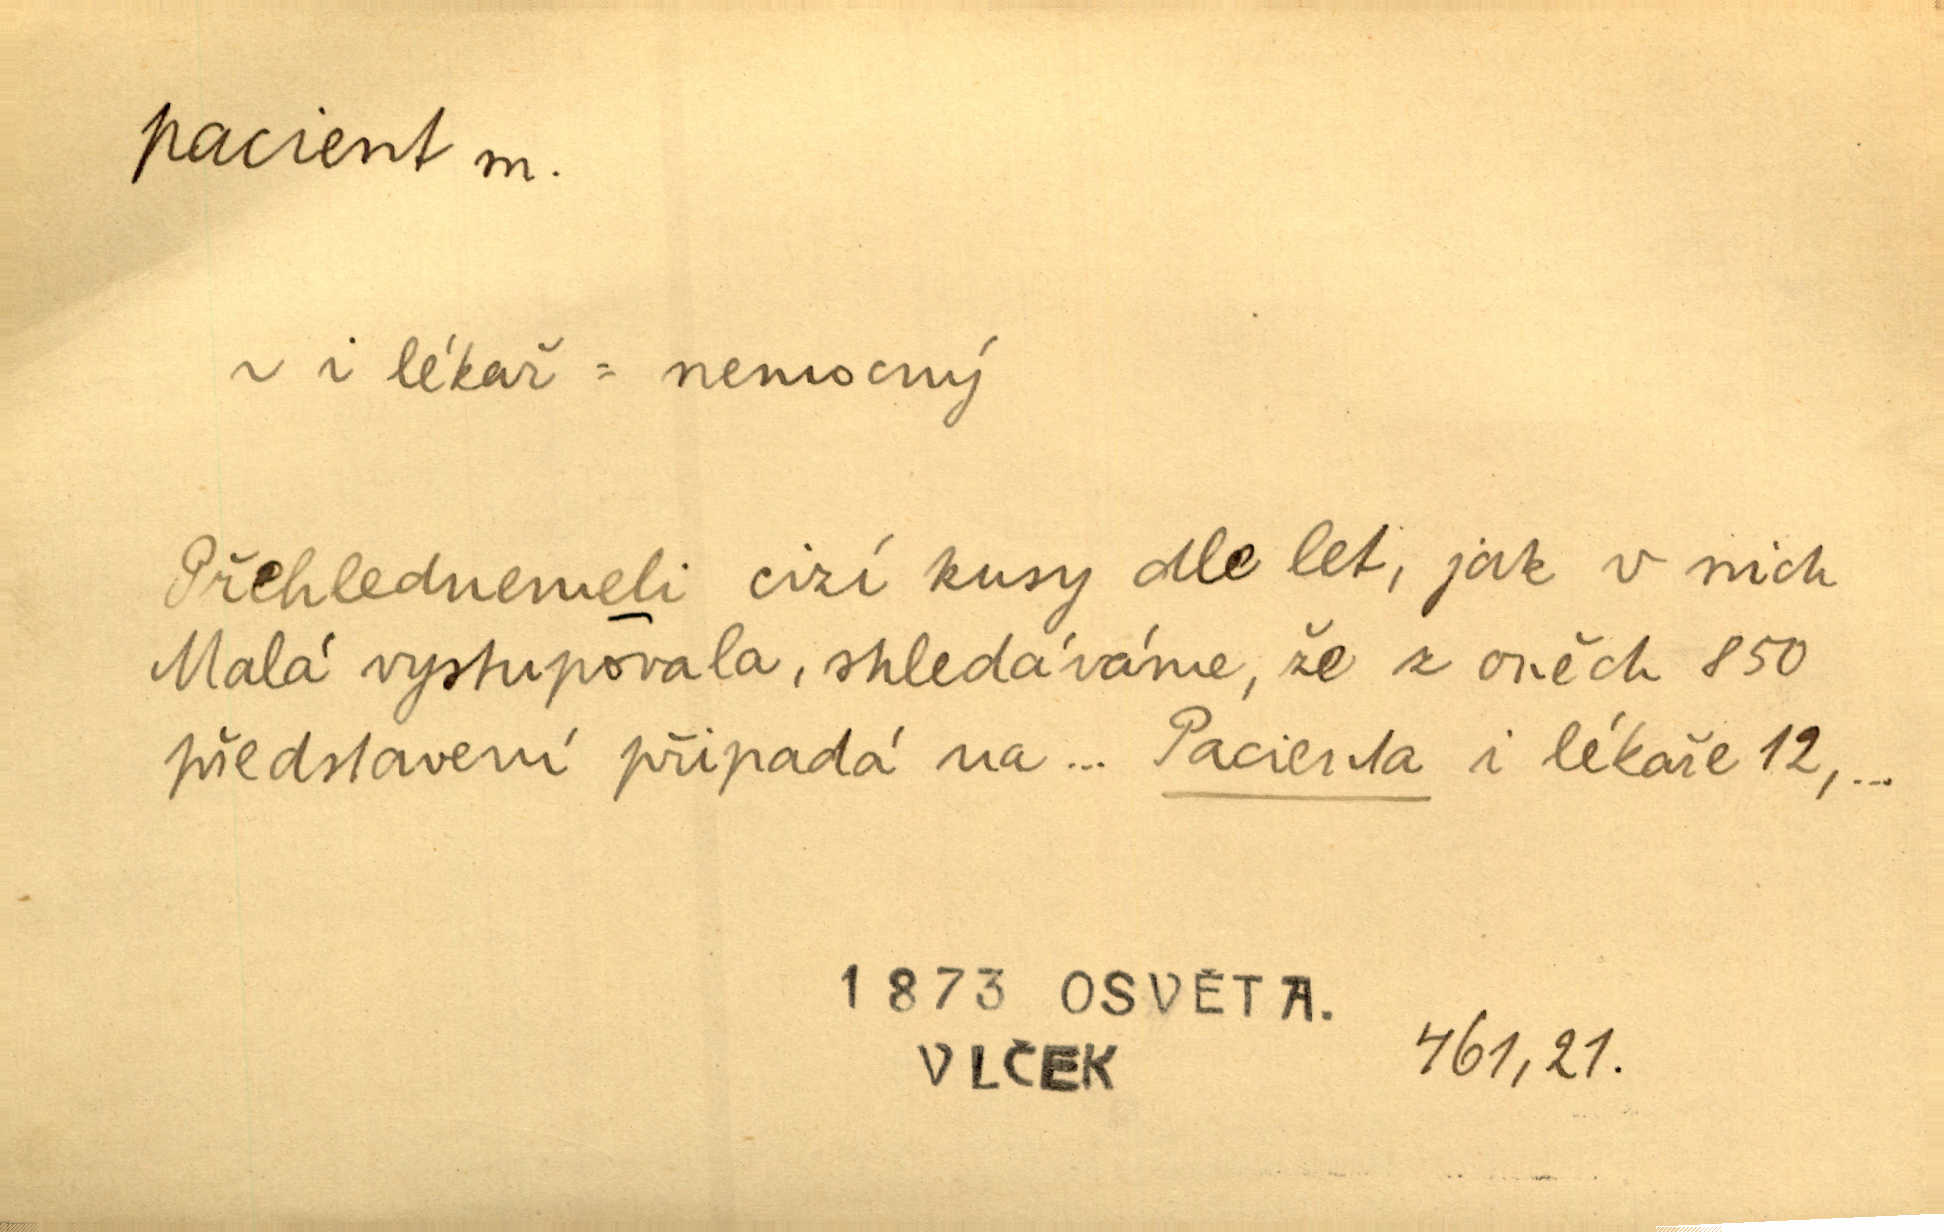 pacient m.
~ i lékař = nemocný
Přehlednemeli cizí kusy dle let, jak v nich
Malá vystupovala, shledáváme, že z oněch 850
představení připadá na ... Pacienta i lékaře 12, ...
1873 OSVĚTA.
VLČEK 461,21.